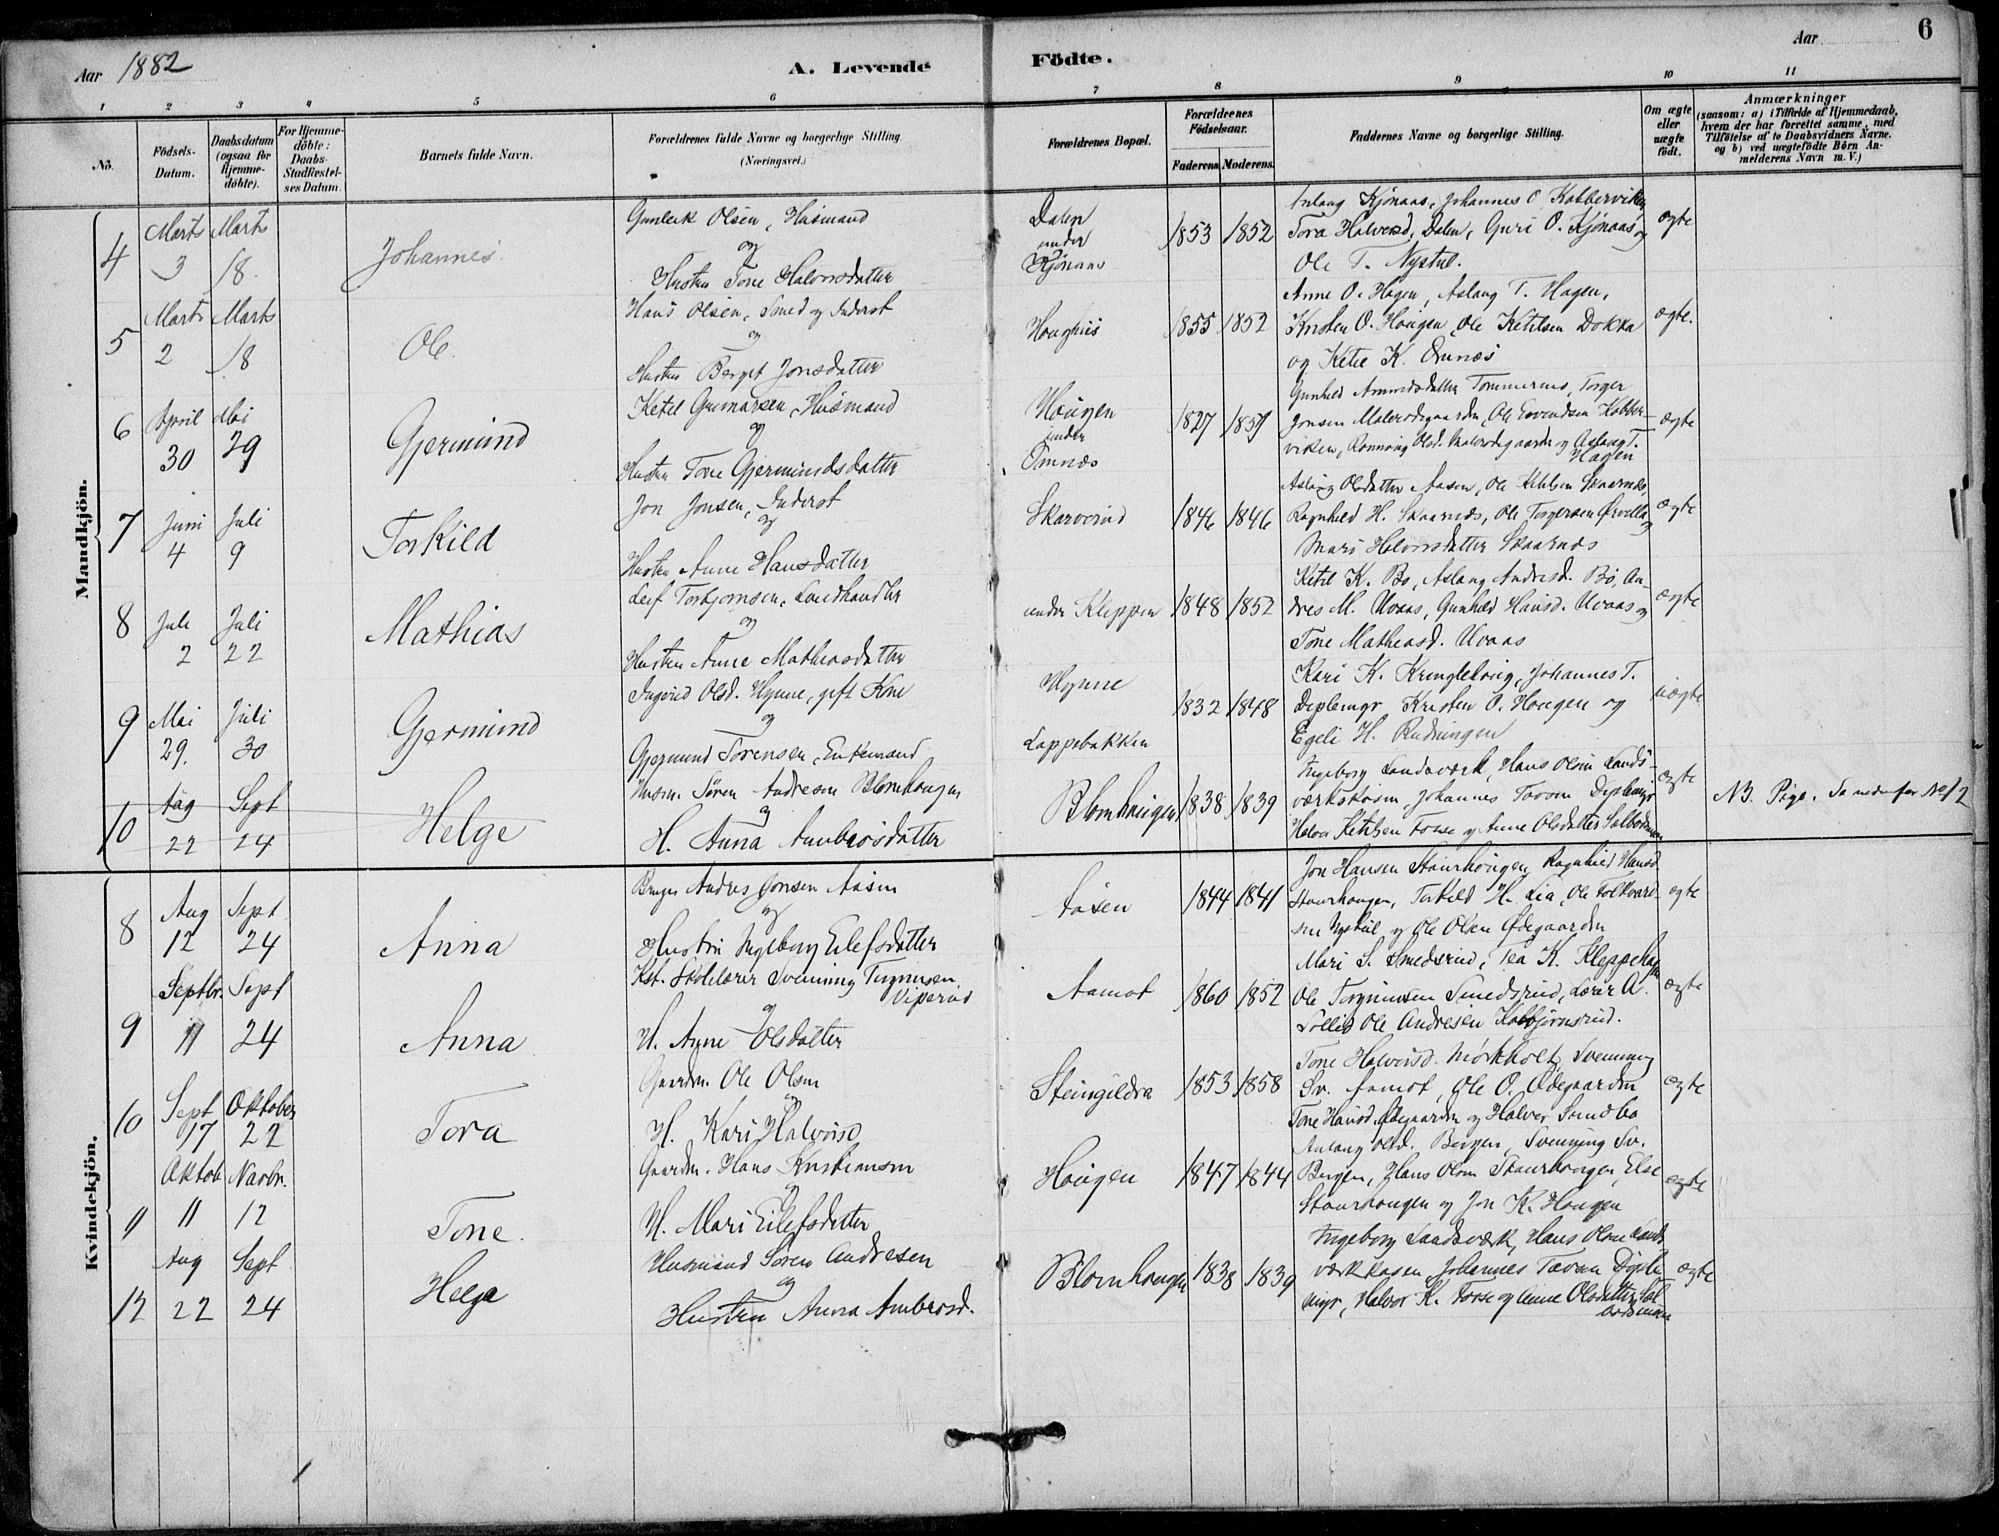 Aar 1882
A. Levende Födte.
Aar
6
1 2 3 4 5 6 7 8 9 10 11
No.
Födsels-Datum.
Daabsdatum (ogsaa for Hjemme-döbte).
For Hjemme-döbte: Daabs-Stadfæstel-ses Datum.
Barnets fulde Navn.
Forældrenes fulde Navne og borgerlige Stilling. (Næringsvei.)
Forældrenes Bopæl.
Forældrenes Födselsaar.
Faderens. Moderens.
Faddernes Navne og borgerlige Stilling.
Om ægte eller uægte födt.
Anmærkninger
(saasom: a) i Tilfælde af Hjemmedaab,
hvem der har forrettet samme, med
Tilföielse af to Daabsvidners Navne.
og b) ved uægtefödte Börn An-
melderens Navn m. V.)
Mandkjön.
4 Marts 3 Marts 18. Johannes
Gunleik Olsen, Husmand
og
Husten Tone Halvorsdatter
Dalen
under
Kjönaas
1853 1852
Aslaug Kjönaas, Johannes O. Kobberviken,
Tora Halvorsd. Dalen, Guri O. Kjönaas og
Ole T. Nystul.
ægte
5 Marts 2 Marts 18 Ole.
Hans Olsen, Smed og Inderst
og
Husten Berget Jonsdatter
Houghus
1855 1852
Anne O. Hagen, Aslaug T. Hagen,
Kristen O. Hougen, Ole Ketilsen Dokka
og Ketil K. Omnes
ægte.
6 April 30 Mai 29 Gjermund
Ketil Gunnarsen, Husmand
og
Husten Tone Gjermundsdatter
Hougen
under
Omnæs
1827 1857
Gunhild Tommernes, Torger
Jonsen Ole Eivendsen Kobber-
viken, Rønnoug Olsd. og Aslaug T.
Hagen
ægte
7 Juni 4 Juli 9 Torkild
Jon Jonsen, Inderst
og
Husten Anne Hansdatter
Skarverud
1846 1846
Aslaug Olsdatter Aasen, Ole Ketilsen Skaarnæs,
Ragnhild H. Skaarnæs, Ole Torgersen Ørvella og
Mari Halvorsdatter Skaarnæs
ægte
8 Juli 2 Juli 22 Mathias
Leif Torbjornsen, Landhandler
og
Husten Anne Mathiasdatter
under Kleppen
1848 1852
Ketil K. Bø, Aslaug Andresd. Bö, An-
dres M. Uvaas, Gunhild Hansd. Uvaas og
Tone Mathiasd. Uvaas
ægte
9 Mai 29. Juli 30 Gjermund
Ingerid Olsd. Hynne, gift Kone
og
Gjermund Sörensen, Enkemand
Hynne
Lappebakken
1832 1848
Kari K. Kringlehoug, Johannes T.
Deplemyr Kristen O. Hougen og
Egeli H. Rudningen
uægte
10 Aug 22 Sept 24 Helge
Husm. Sören Andresen Blomhougen
og
H. Anna Ambrosdatter
Blomhougen
1838 1839
Ingeborg Landsværk, Hans Olsen Lands-
værkskåsen, Johannes Tovsen Deplemyr
Halvor Ketilsen Fosse og Anne Olsdatter Sølbodmoen
ægte
NB. Pige. Se nedenfor No 12
Kvindekjön.
8 Aug 12 Sept 24 Anna
Bruger Andres Jonsen Aasen
og
Hustru Ingeborg Eilefsdatter
Aasen
1844 1841
Jon Hansen Staurhougen, Ragnhild Hansd.
Staurhougen, Torkild H. Lia, Ole Folkvard-
sen Nystul og Ole Olsen Ødegaarden
ægte
9 Septbr. 11 Sept 24 Anna
Kst. Skolelærer Svenning Torgrimsen
Viperud
og
H. Anne Olsdatter
Aamot
1860 1852
Mari S. Smedsrud, Tea K. Kleppehagen
Ole Torgrimsen Smedsrud, Lærer A.
Sollid Ole Andresen Kolbjörnsrud.
ægte
10 Sept 17 Oktober 22 Tora
Gaardm. Ole Olsen
og
H. Kari Halvorsd
Steingildra
1853 1858
Tone Halvorsd. Mørkholt, Svenning
Sv. Aamot, Ole O. Ødegaarden
Tone Hansd. Ødegaarden og Halvor Sundbø
ægte
11 Oktob 11 Novbr. 12 Tone.
Gaardm. Hans Kristiansen
og
H. Mari Eilefsdatter
Hougen
1847 1844
Aslaug Olsd. Bergen, Svenning Sv.
Bergen, Hans Olsen Staurhougen, Else
Staurhougen og Jon K. Hougen
ægte
12 Aug 22 Sept 24 Helga
Husmand Sören Andresen
og
Husten Anna Ambrosd.
Blomhougen
1838 1839
Ingeborg Landsværk, Hans Olsen Lands
værkkåsen, Johannes Tovsen Deple
myr, Halvor K. Fosse og Anne Olsdatter Søl
bodsmoen
ægte